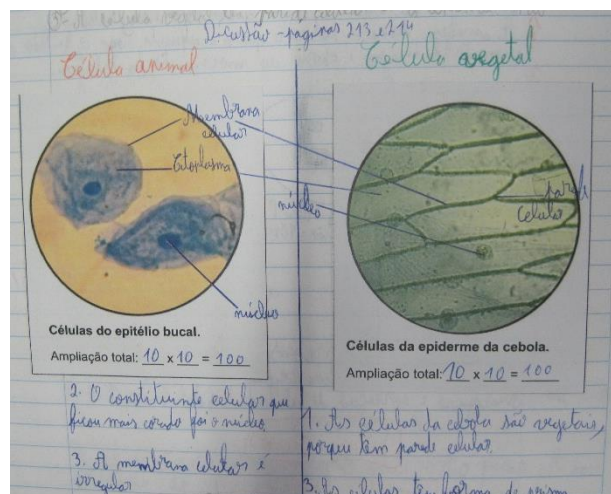 Discussão - páginas 213 e 214
Célula animal
Célula vegetal
Membrana
celular
Citoplasma
núcleo
parede
celular
núcleo
Células do epitélio bucal.
Ampliação total: 10 x 10 = 100
Células da epiderme da cebola.
Ampliação total: 10 x 10 = 100
2. O constituinte celular que
ficou mais corado foi o núcleo.
3. A membrana celular é
irregular
1. As células da cebola são vegetais,
porque têm parede celular.
3. As células têm forma de prisma